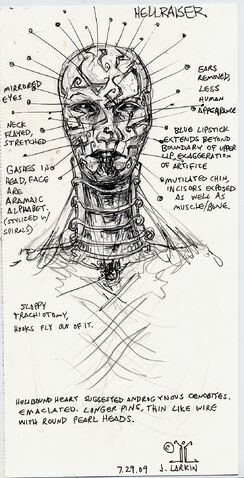 HELLRAISER
MIRRORED
EYES
NECK
FLAYED,
STRETCHED
GASHES IN
HEAD, FACE
ARE
ARAMAIC
ALPHABET.
(STYLIZED W/
SPIRALS)
EARS
REMOVED,
LESS
HUMAN
APPEARANCE
BLUE LIPSTICK
EXTENDS BEYOND
BOUNDARY OF UPPER
LIP, EXAGGERATION
OF ARTIFICE
MUTILATED CHIN,
INCISORS EXPOSED
AS WELL AS
MUSCLE/BONE.
SLOPPY
TRACHIOTOMY,
HOOKS FLY OUT OF IT.
HELLBOUND HEART SUGGESTED ANDROGYNOUS CENOBITES.
EMACIATED. LONGER PINS, THIN LIKE WIRE
WITH ROUND PEARL HEADS.
©
7.29.09 J. LARKIN